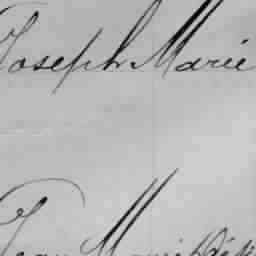 Joseph Marie
Jean Marie